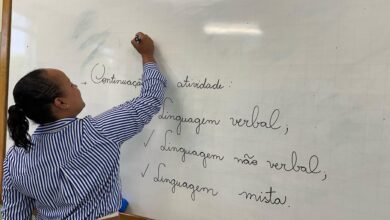 → Continuação atividade:
✓ Linguagem verbal;
✓ Linguagem não verbal;
✓ Linguagem mista.